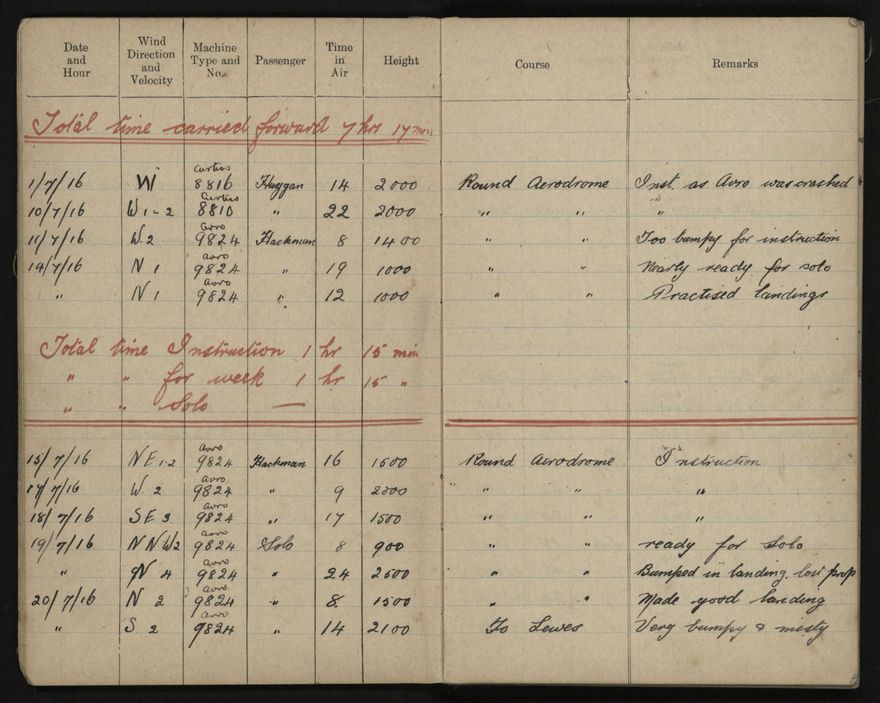 Date and Hour Wind Direction and Velocity Machine Type and No. Passenger Time in Air Height Course Remarks
Total time carried forward 7 hr 17 min
1/7/16 W Curtiss 8816 Huggan 14 2000 Round Aerodrome Inst. as Avro was crashed
10/7/16 W 1-2 Curtiss 8810 " 22 2000 " " "
11/7/16 W. 2 Avro 9824 Hackman 8 1400 " " Too bumpy for instruction
14/7/16 N 1 Avro 9824 " 19 1000 " " Nearly ready for solo
" N 1 Avro 9824 " 12 1000 " " Practised landings
Total time Instruction 1 hr 15 min
" " for week 1 hr 15 "
" " Solo —
15/7/16 NE 1-2 Avro 9824 Hackman 16 1500 Round Aerodrome Instruction
17/7/16 W. 2 Avro 9824 " 9 2000 " " "
18/7/16 SE 3 Avro 9824 " 17 1500 " " "
19/7/16 NNW2 Avro 9824 Solo 8 900 " " ready for solo
" N 4 Avro 9824 " 24 2500 " " Bumped in landing, lost prop
20/7/16 N 2 Avro 9824 " 8 1500 " " Made good landing
" S 2 Avro 9824 " 14 2100 To Lewes Very bumpy & misty